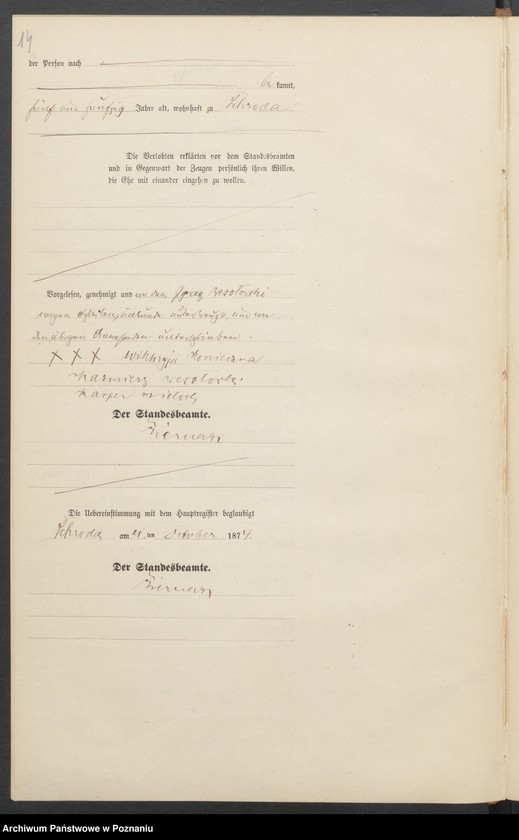 14
der Person nach
be kannt,
fünf und zwanzig Jahre alt, wohnhaft zu Schroda
Die Verlobten erklärten vor dem Standesbeamten
und in Gegenwart der Zeugen persönlich ihren Willen,
die Ehe mit einander eingehen zu wollen.
Vorgelesen, genehmigt und von dem Ignaz Wesołowski
wegen Schreibensunkunde unterkreuzt und von
den übrigen unterschrieben.
× × × Wiktryja Konieczna
Kazmierz Wesołowski
Kasper
Der Standesbeamte.
Die Uebereinstimmung mit dem Hauptregister beglaubigt
Schroda am ten October 1874.
Der Standesbeamte.
Archiwum Państwowe w Poznaniu